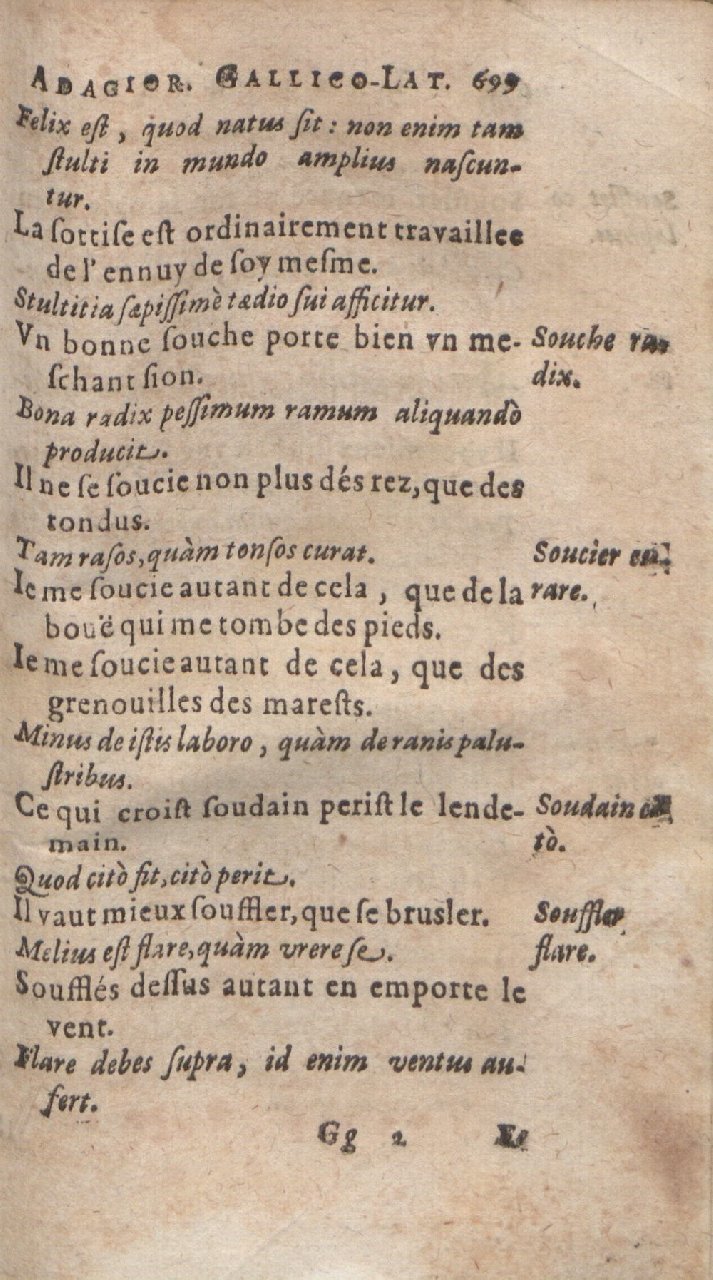 ADAGIOR. GALLICO-LAT. 699
Felix eſt, quod natus ſit: non enim tam
ſtulti in mundo amplius naſcun-
tur.
La ſottiſe eſt ordinairement travaillee
de l'ennuy de ſoy meſme.
Stultitia ſæpiſſimè tædio ſui afficitur.
Vn bonne ſouche porte bien vn me-
ſchant ſion.
Souche ra-
dix.
Bona radix peſſimum ramum aliquandò
producit.
Il ne ſe ſoucie non plus dés rez, que des
tondus.
Tam raſos, quàm tonſos curat.
Ie me ſoucie autant de cela, que de la
bouë qui me tombe des pieds.
Soucier
rare.
Ie me ſoucie autant de cela, que des
grenouilles des mareſts.
Minus de iſtis laboro, quàm de ranis palu-
ſtribus.
Ce qui croiſt ſoudain periſt le lende-
main.
Soudain
tò.
Quod citò fit, citò perit.
Il vaut mieux ſouffler, que ſe brusler.
Melius eſt flare, quàm vrere ſe.
Souffler
flare.
Soufflés deſſus autant en emporte le
vent.
Flare debes ſupra, id enim ventus au-
fert.
Gg 2